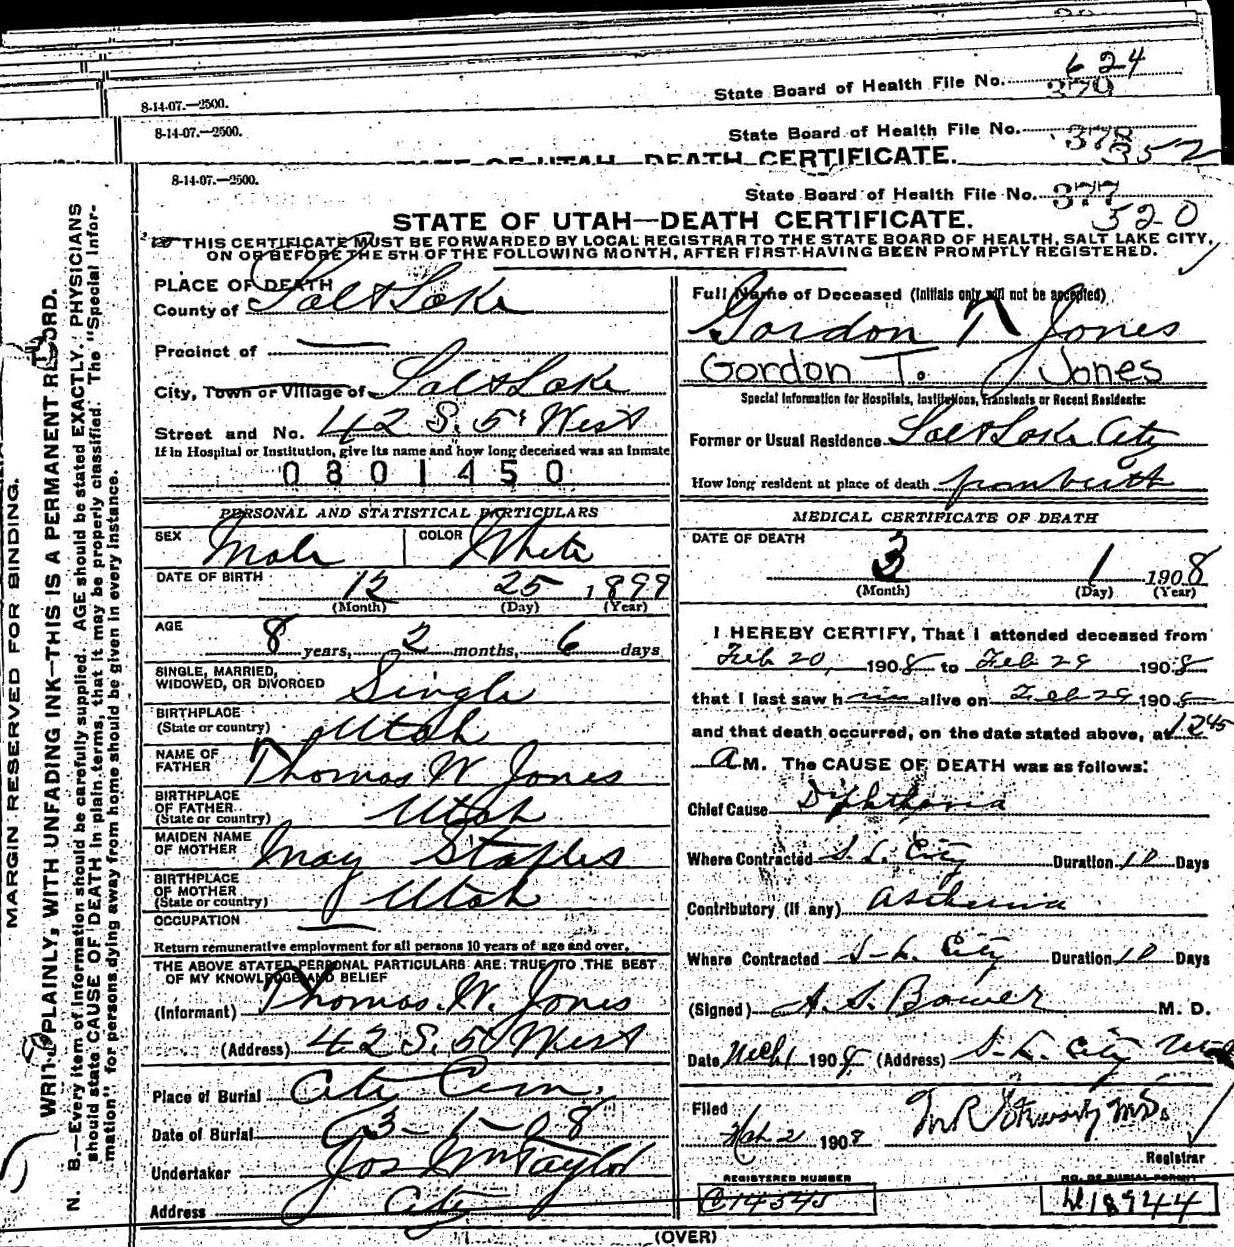 624
8-14-07.—2500.
State Board of Health File No. 379
8-14-07.—2500.
State Board of Health File No. 378
352
STATE OF UTAH—DEATH CERTIFICATE.
8-14-07.—2500.
State Board of Health File No. 377
520
STATE OF UTAH—DEATH CERTIFICATE.
THIS CERTIFICATE MUST BE FORWARDED BY LOCAL REGISTRAR TO THE STATE BOARD OF HEALTH, SALT LAKE CITY,
ON OR BEFORE THE 5TH OF THE FOLLOWING MONTH, AFTER FIRST HAVING BEEN PROMPTLY REGISTERED.
MARGIN RESERVED FOR BINDING.
WRITE PLAINLY, WITH UNFADING INK—THIS IS A PERMANENT RECORD.
N. B.—Every item of information should be carefully supplied. AGE should be stated EXACTLY. PHYSICIANS
should state CAUSE OF DEATH in plain terms, that it may be properly classified. The "Special Infor-
mation" for persons dying away from home should be given in every instance.
PLACE OF DEATH
County of Salt Lake
Precinct of —
City, Town or Village of Salt Lake
Street and No. 42 S. 5 West
If in Hospital or Institution, give its name and how long deceased was an inmate
0801450
PERSONAL AND STATISTICAL PARTICULARS
SEX Male COLOR White
DATE OF BIRTH 12 25 1899
(Month) (Day) (Year)
AGE 8 years, 2 months, 6 days
SINGLE, MARRIED,
WIDOWED, OR DIVORCED Single
BIRTHPLACE
(State or country) Utah
NAME OF
FATHER Thomas W Jones
BIRTHPLACE
OF FATHER
(State or country) Utah
MAIDEN NAME
OF MOTHER May Staples
BIRTHPLACE
OF MOTHER
(State or country) Utah
OCCUPATION —
Return remunerative employment for all persons 10 years of age and over.
THE ABOVE STATED PERSONAL PARTICULARS ARE TRUE TO THE BEST
OF MY KNOWLEDGE AND BELIEF
(Informant) Thomas. W. Jones
(Address) 42 S. 5 West
Place of Burial City Cem.
Date of Burial 3-1-08
Undertaker Jos Wm Taylor
Address City
Full Name of Deceased (Initials only will not be accepted)
Gordon T Jones
Gordon T. Jones
Special Information for Hospitals, Institutions, Transients or Recent Residents:
Former or Usual Residence Salt Lake City
How long resident at place of death from birth
MEDICAL CERTIFICATE OF DEATH
DATE OF DEATH
3 1 1908
(Month) (Day) (Year)
I HEREBY CERTIFY, That I attended deceased from
Feb 20, 1908 to Feb 29 1908
that I last saw him alive on Feb 29 1908
and that death occurred, on the date stated above, at 1245
A M. The CAUSE OF DEATH was as follows:
Chief Cause Diphtheria
Where Contracted S. L. City Duration 10 Days
Contributory (if any) Asthenia
Where Contracted S-L. City Duration 10 Days
(Signed) A. S. Bower M. D.
Date Mch 1 1908 (Address) S-L. City Utah
Filed
Mch 2 1908
Registrar
REGISTERED NUMBER
C14545
NO. OF BURIAL PERMIT
(OVER)